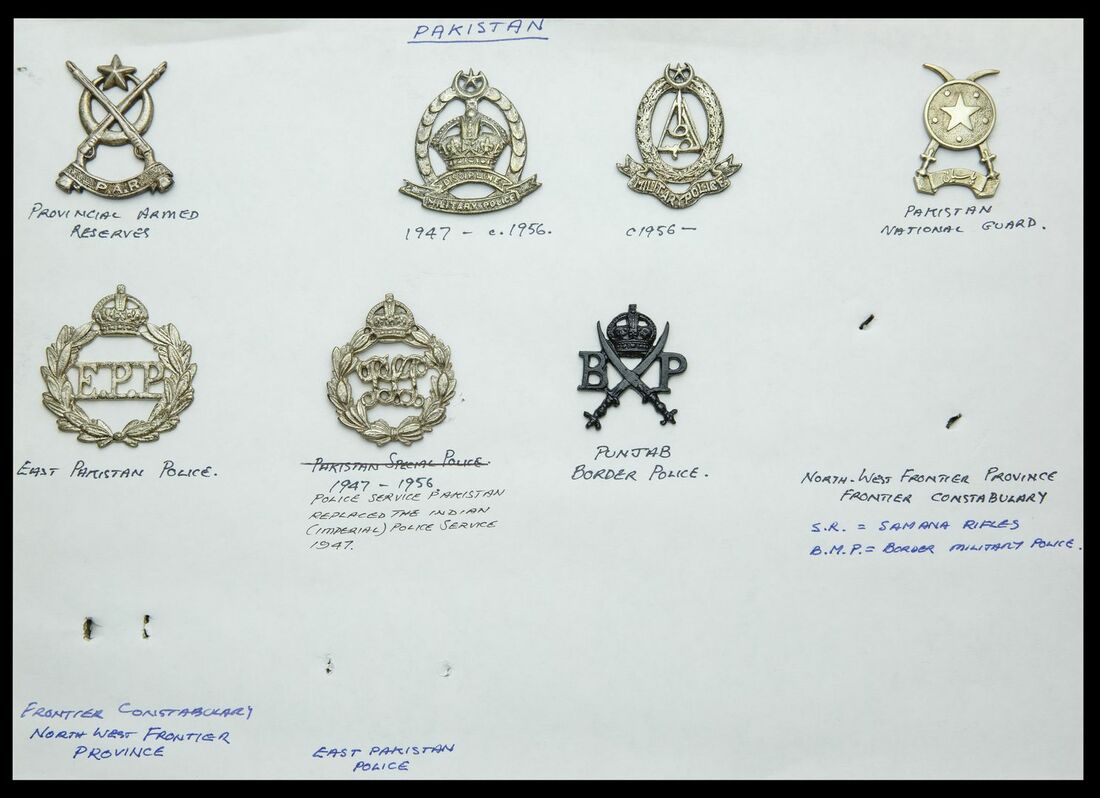 PAKISTAN
P.A.R
PROVINCIAL ARMED
RESERVES
DISCIPLINE
MILITARY POLICE
1947 - c.1956.
MILITARY POLICE
c1956 —
پاکستان
PAKISTAN
NATIONAL GUARD.
E.P.P
EAST PAKISTAN POLICE.
PAKISTAN SPECIAL POLICE.
1947 - 1956.
POLICE SERVICE PAKISTAN
REPLACED THE INDIAN
(IMPERIAL) POLICE SERVICE
1947.
B P
PUNJAB
BORDER POLICE.
NORTH-WEST FRONTIER PROVINCE
FRONTIER CONSTABULARY
S.R. = SAMANA RIFLES
B.M.P. = BORDER MILITARY POLICE.
FRONTIER CONSTABULARY
NORTH WEST FRONTIER
PROVINCE
EAST PAKISTAN
POLICE